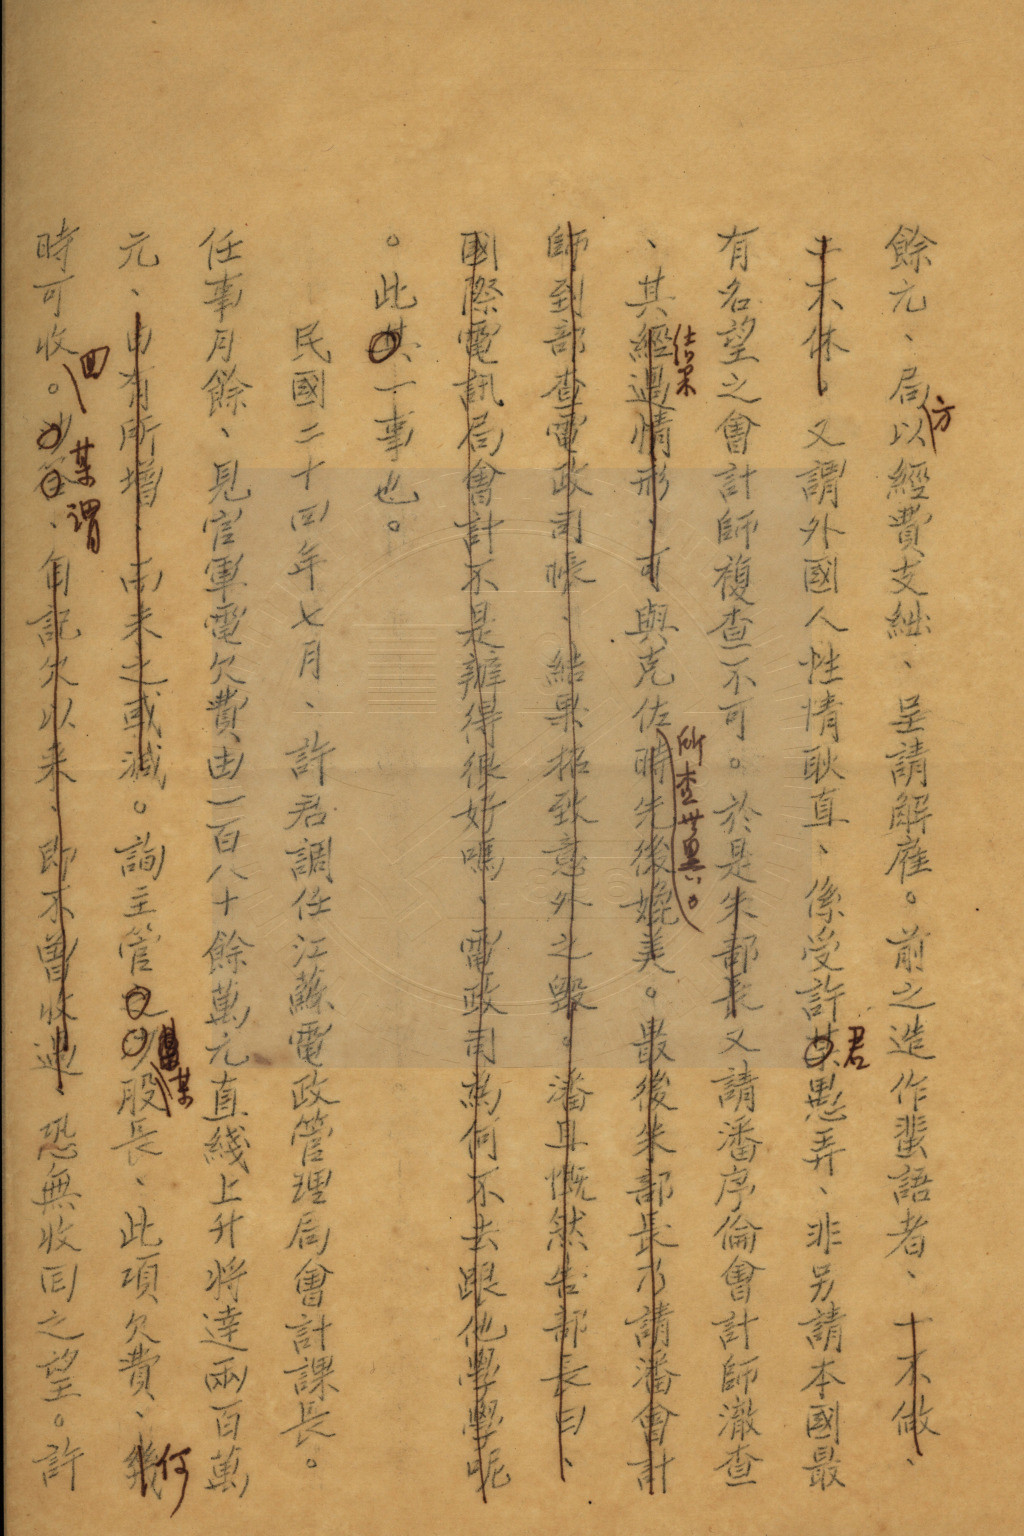 餘元、局以方經費支絀、呈請解雇。前之造作蜚語者、一不做、
二不休。又謂外國人性情耿直、係受許某君愚弄、非另請本國最
有名望之會計師複查不可。於是朱部長又請潘序倫會計師澈查
、其經過情形、結果可與克佐時先後媲美。所查無異。最後朱部長乃請潘會計
師到部查電政司帳、結果招致意外之毀。潘且慨然告部長曰、
國際電訊局會計不是辦得很好嗎、電政司為何不去跟他學學呢
。此其一事也。
民國二十四年七月、許君調任江蘇電政管理局會計課長。
任事月餘、見官軍電欠費由一百八十餘萬元直綫上升將達兩百萬
元、由有所增、由未之或減。詢主管股長某、此項欠費、幾何
時可收回。某謂、自記欠以來、即不曾收過、恐無收回之望。許